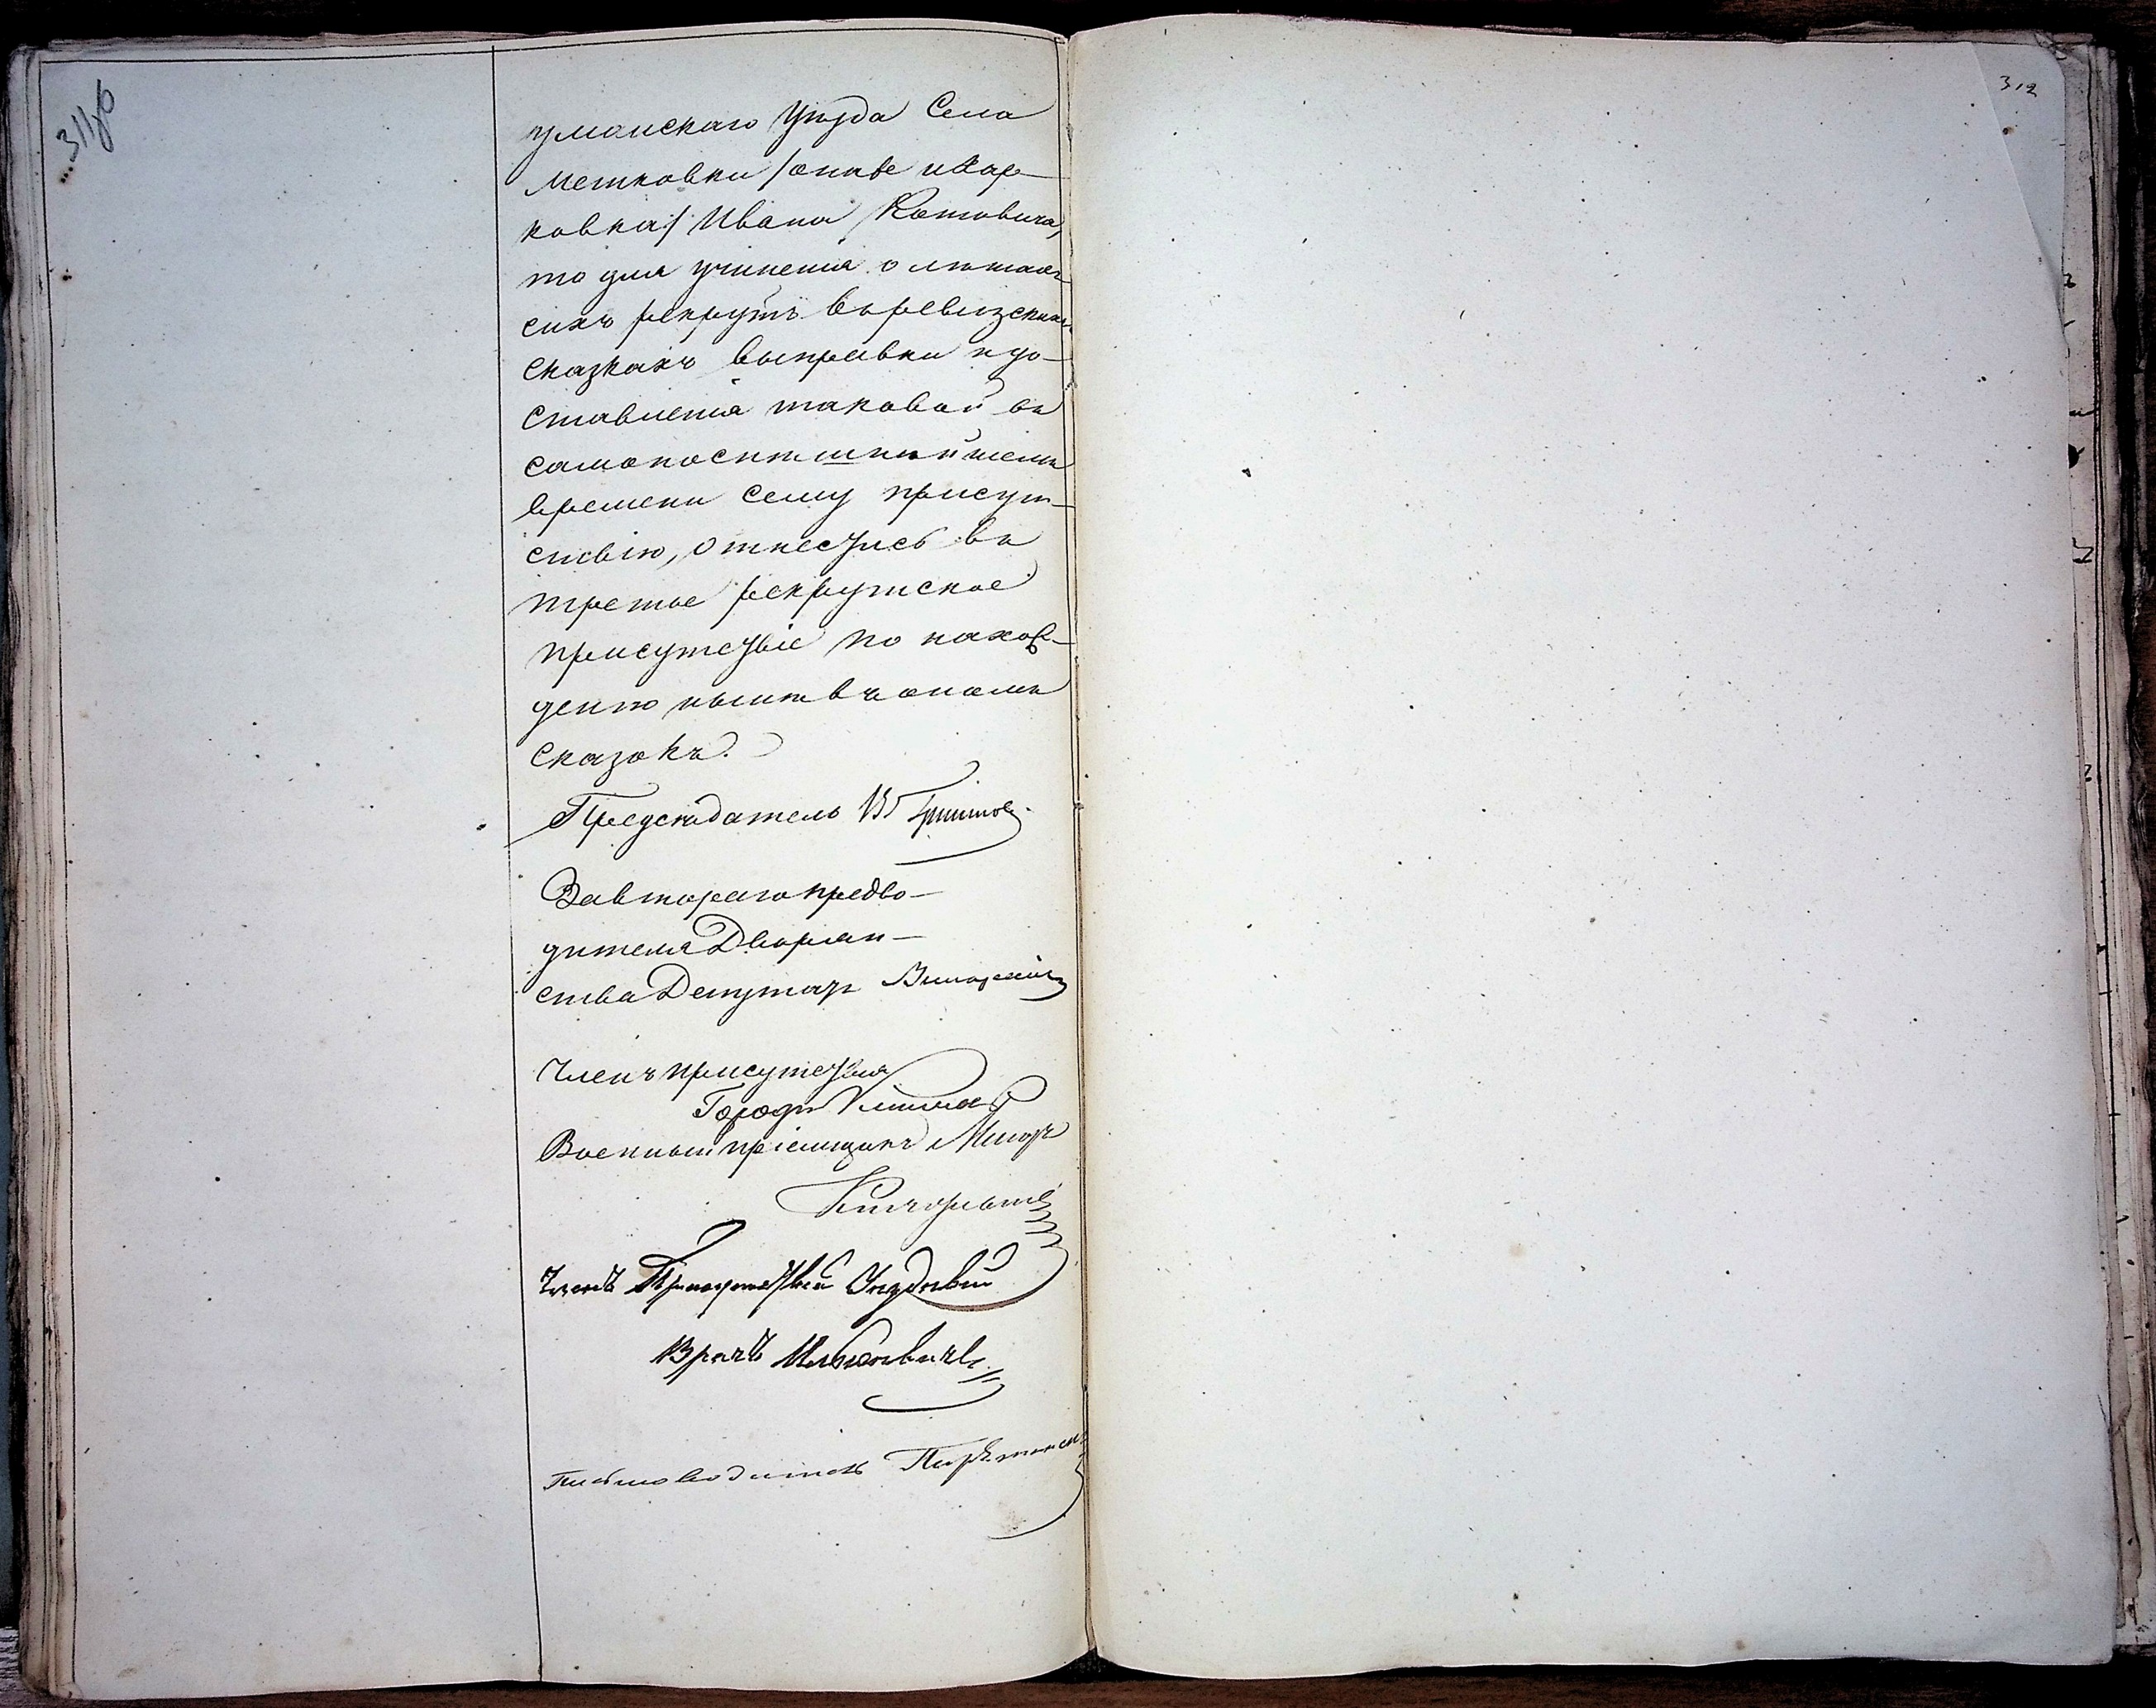 311об
312
уманскаго уѣзда Села
Метковки /онаже и Хар-
ковка/ Ивана Котовича,
то для учиненія о лѣтахъ
сихъ рекрутъ въ ревизскихъ
сказкахъ выправки и до-
ставленія таковой въ
самопоспѣшнѣйшемъ
времени сему присут-
ствію, отнестись въ
третое рекрутское
присутствіе по нахож-
денію нынѣ въ ономъ
сказокъ.
Предсѣдатель В
За втораго предво-
дителя Дворян-
ства Депутатъ
Членъ присутствія
Город
Военный пріемщикъ Маіоръ
Членъ Присутствія
Врачъ
Письмоводитель